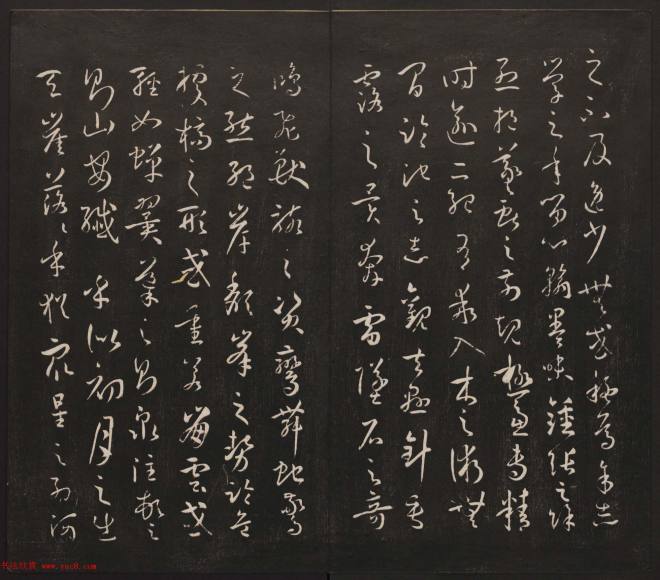 之不及逸少無或疑焉余志
學之年留心翰墨味鍾張之餘
烈挹羲獻之前規極慮專精
時逾二紀有乖入木之術無
間臨池之志觀夫懸針垂
露之異奔雷墜石之奇
鴻飛獸駭之資鸞舞蛇驚
之態絕岸頹峯之勢臨危
據槁之形或重若崩雲或
輕如蟬翼導之則泉注頓之
則山安纖〻乎似初月之出
天崖落〻乎猶眾星之列河
书法欣赏 www.yac8.com